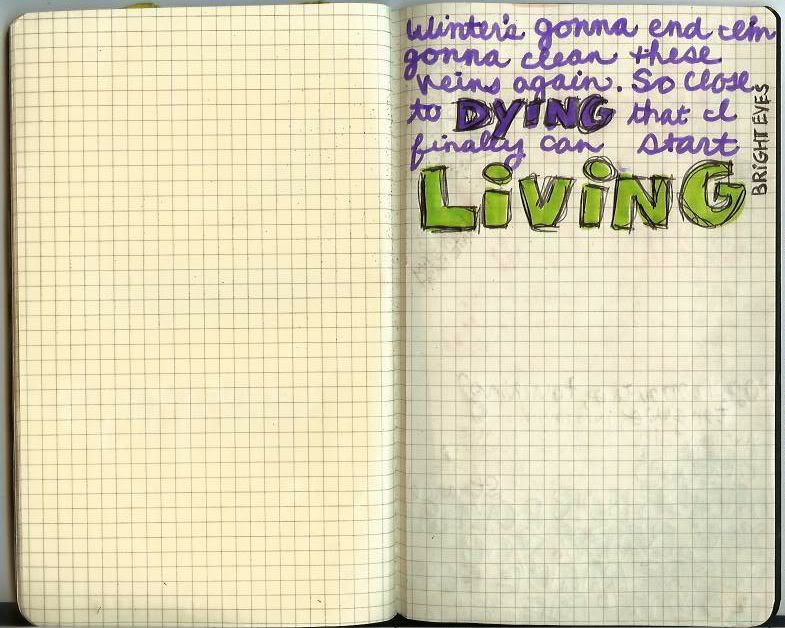 Winter's gonna end I'm
gonna clean these
veins again. So close
to DYiNG that I
finally can start
LiViNG
BRiGHT EYES